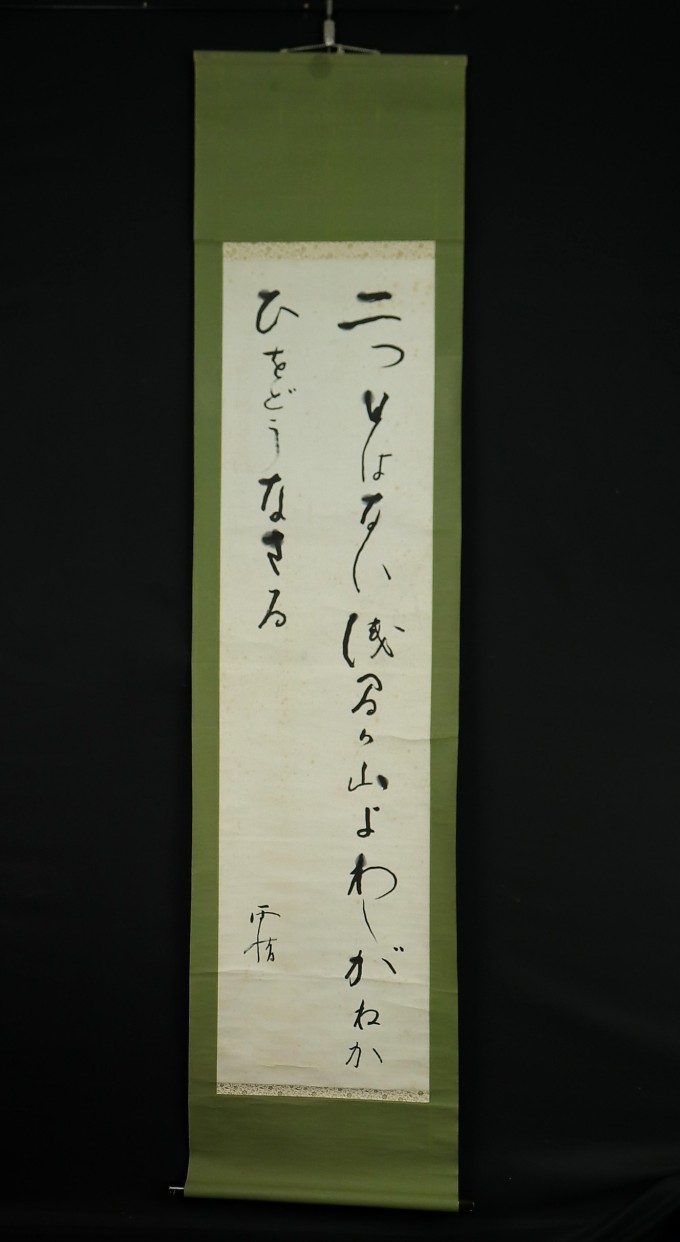 二つとはない浅間の山よわしがねか
ひをどうなさる
雨情